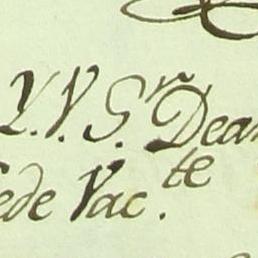 Y. V. Sr. Dean
Sede Vac.te